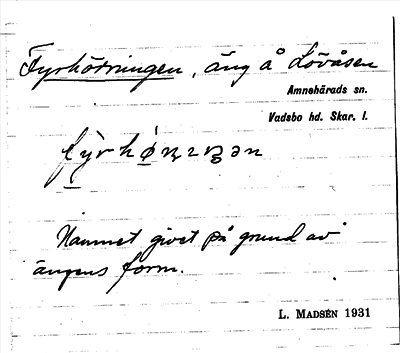 Fyrhörningen, äng å Lövåsen
Amnehärads sn.
Vadsbo hd. Skar. l.
Namnet givet på grund av
ängens form.
L. MADSÉN 1931